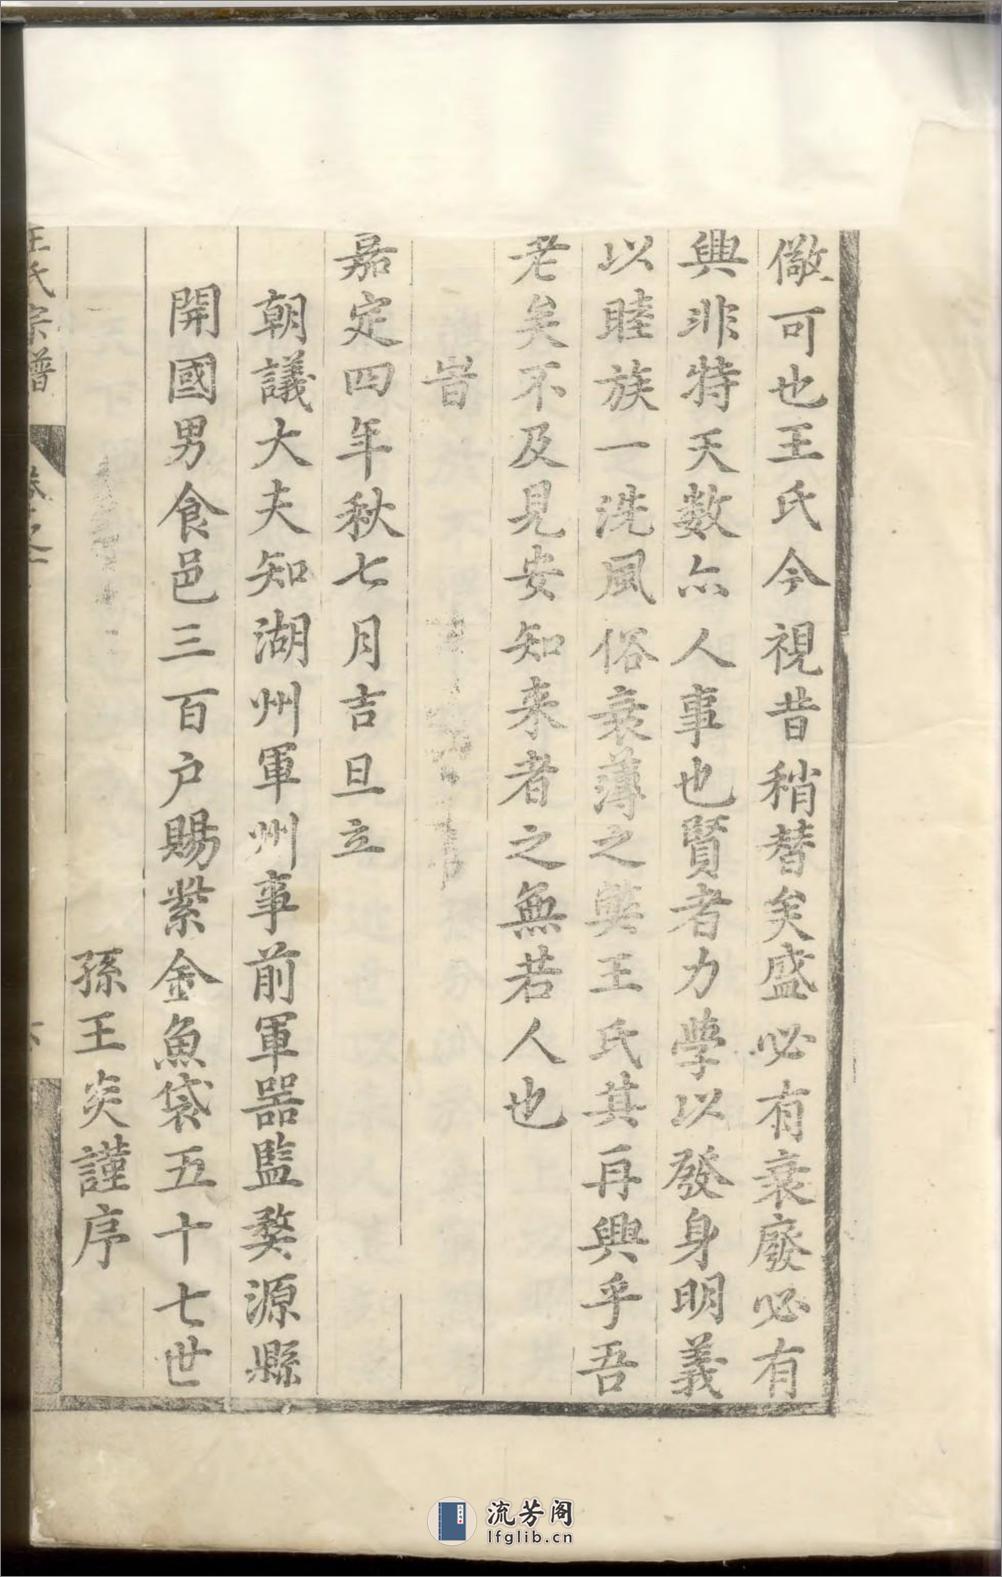 儆可也王氏今視昔稍替矣盛必有衰廢必有
興非特天數亦人事也賢者力學以發身明義
以睦族一洗風俗衰薄之弊王氏其再興乎吾
老矣不及見安知来者之無若人也
旹
嘉定四年秋七月吉旦立
朝議大夫知湖州軍州事前軍器監婺源縣
開國男食邑三百户賜紫金魚袋五十七世
孫王炎謹序
王氏宗譜
流芳阁
lfglib.cn